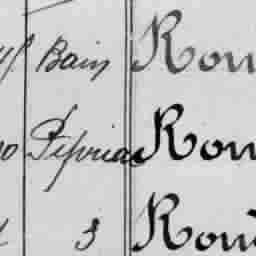 Bain Rou
Pipriac Rou
3 Rou